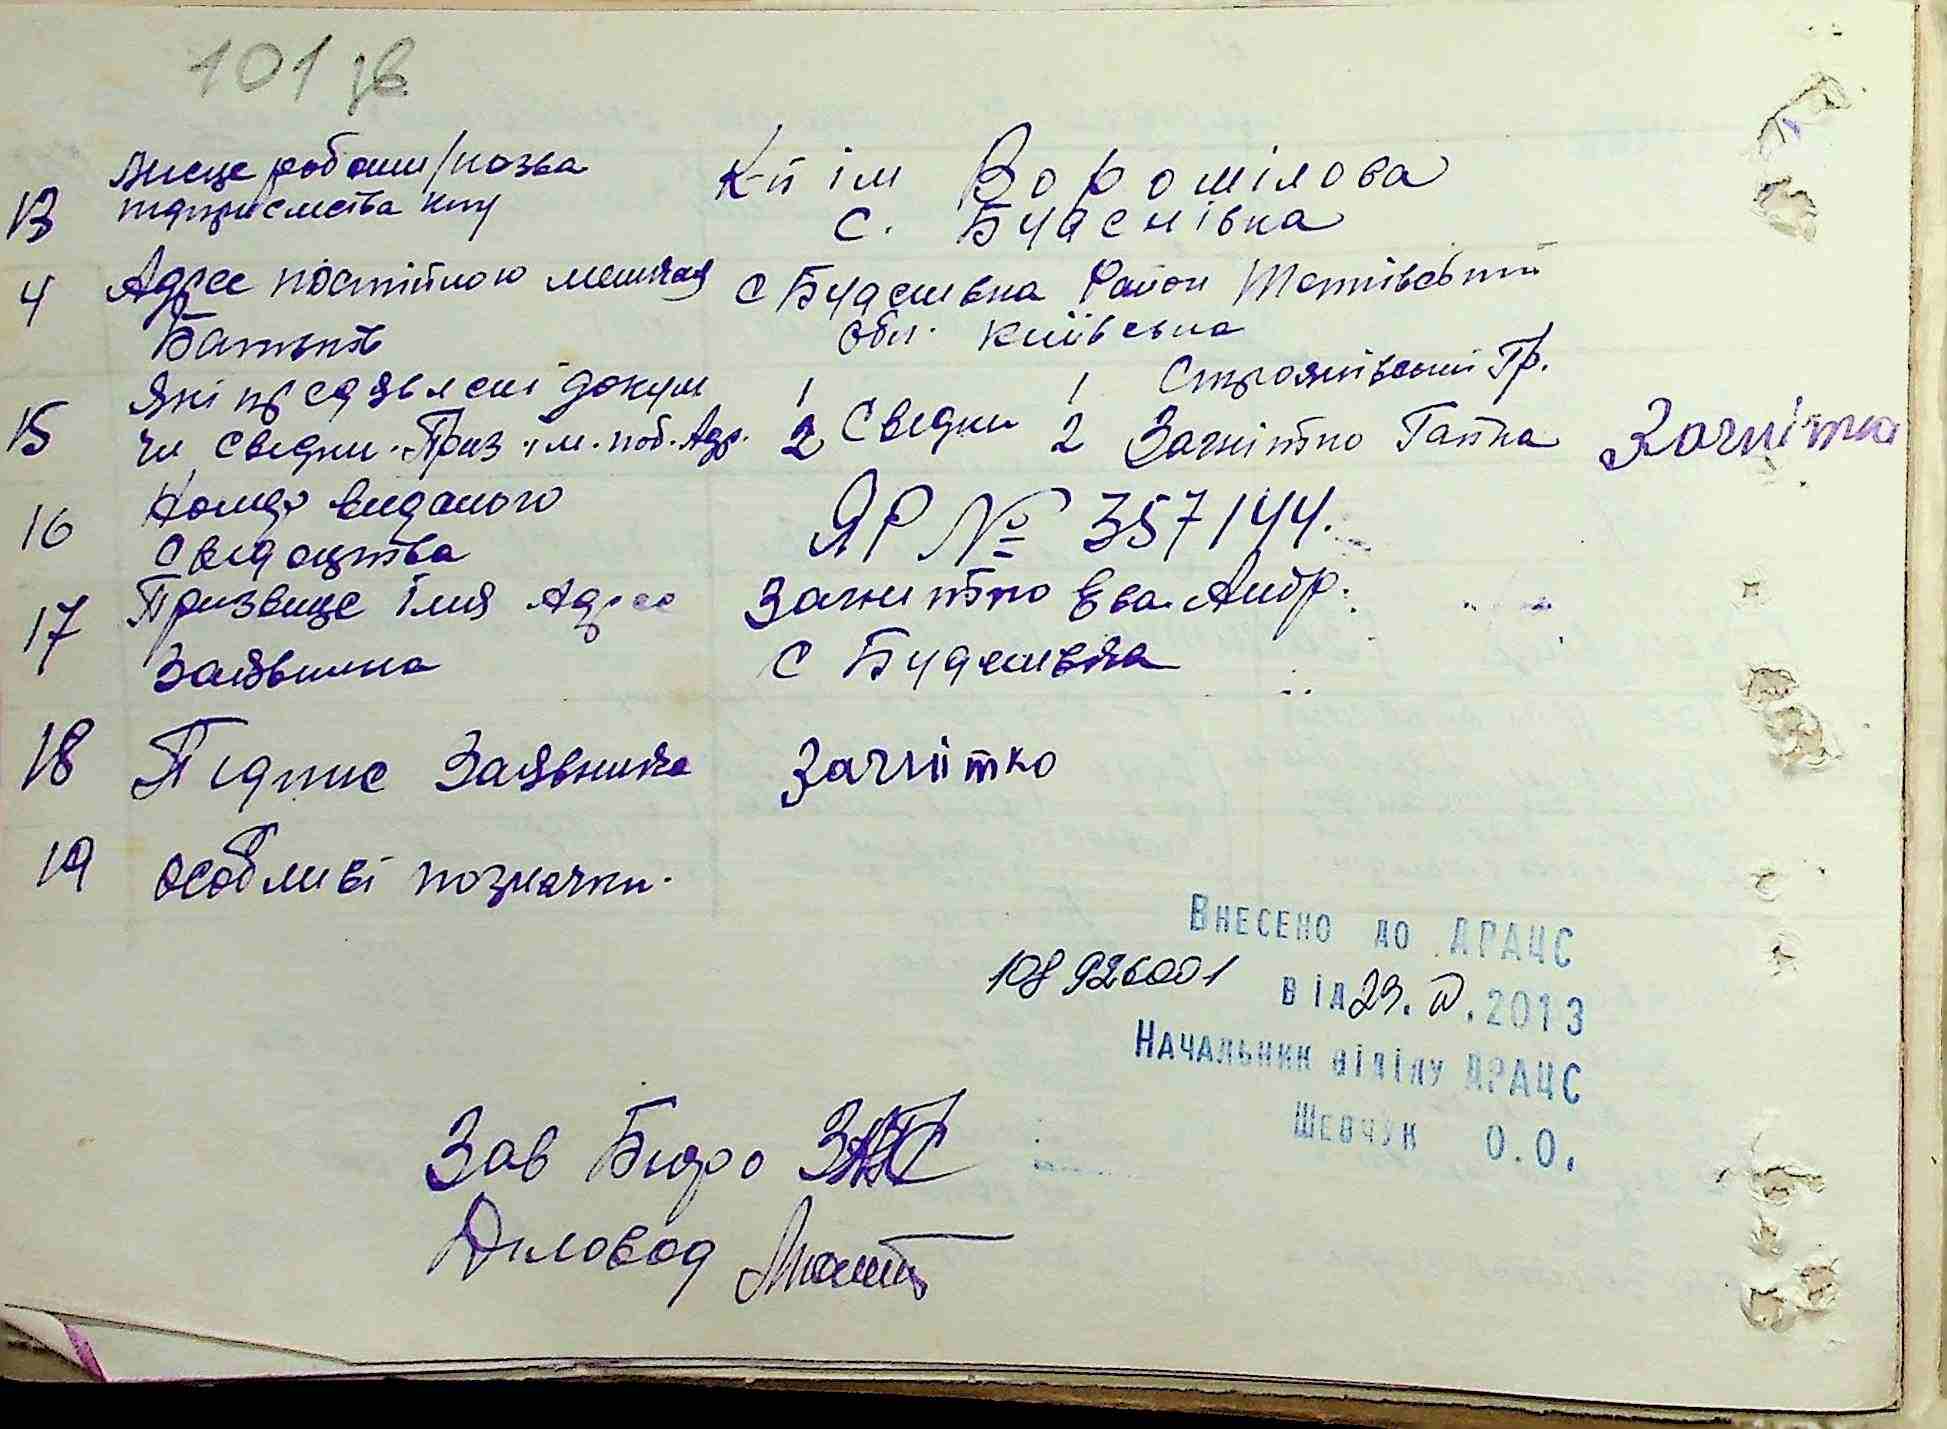 101 зв
13 Місце роботи/назва К-п ім Ворошілова
підприємства кпу С. Будаєнівка
4 Адрес постійного мешкан С Будаєнівка Район Тетіївський
Батьків обл. Київська
15 Які предявлені докум 1 1 Строянівський Гр.
чи сведки. Приз. ім. поб. Адр. 2 Сведки 2 Загнітко Гапка Загнітко
16 Номер виданого ЯР № 357144.
Свідоцтва
17 Призвище Імя Адрес Загнитко Ева. Андр.
Заявника С Будаєнівка
18 Підпис Заявника Загнітко
19 Особливі позначки.
Внесено до ДРАЦС
108926001 від 29. IV. 2013
Начальник відділу ДРАЦС
Шевчук О.О.
Зав Бюро ЗАГС
Діловод